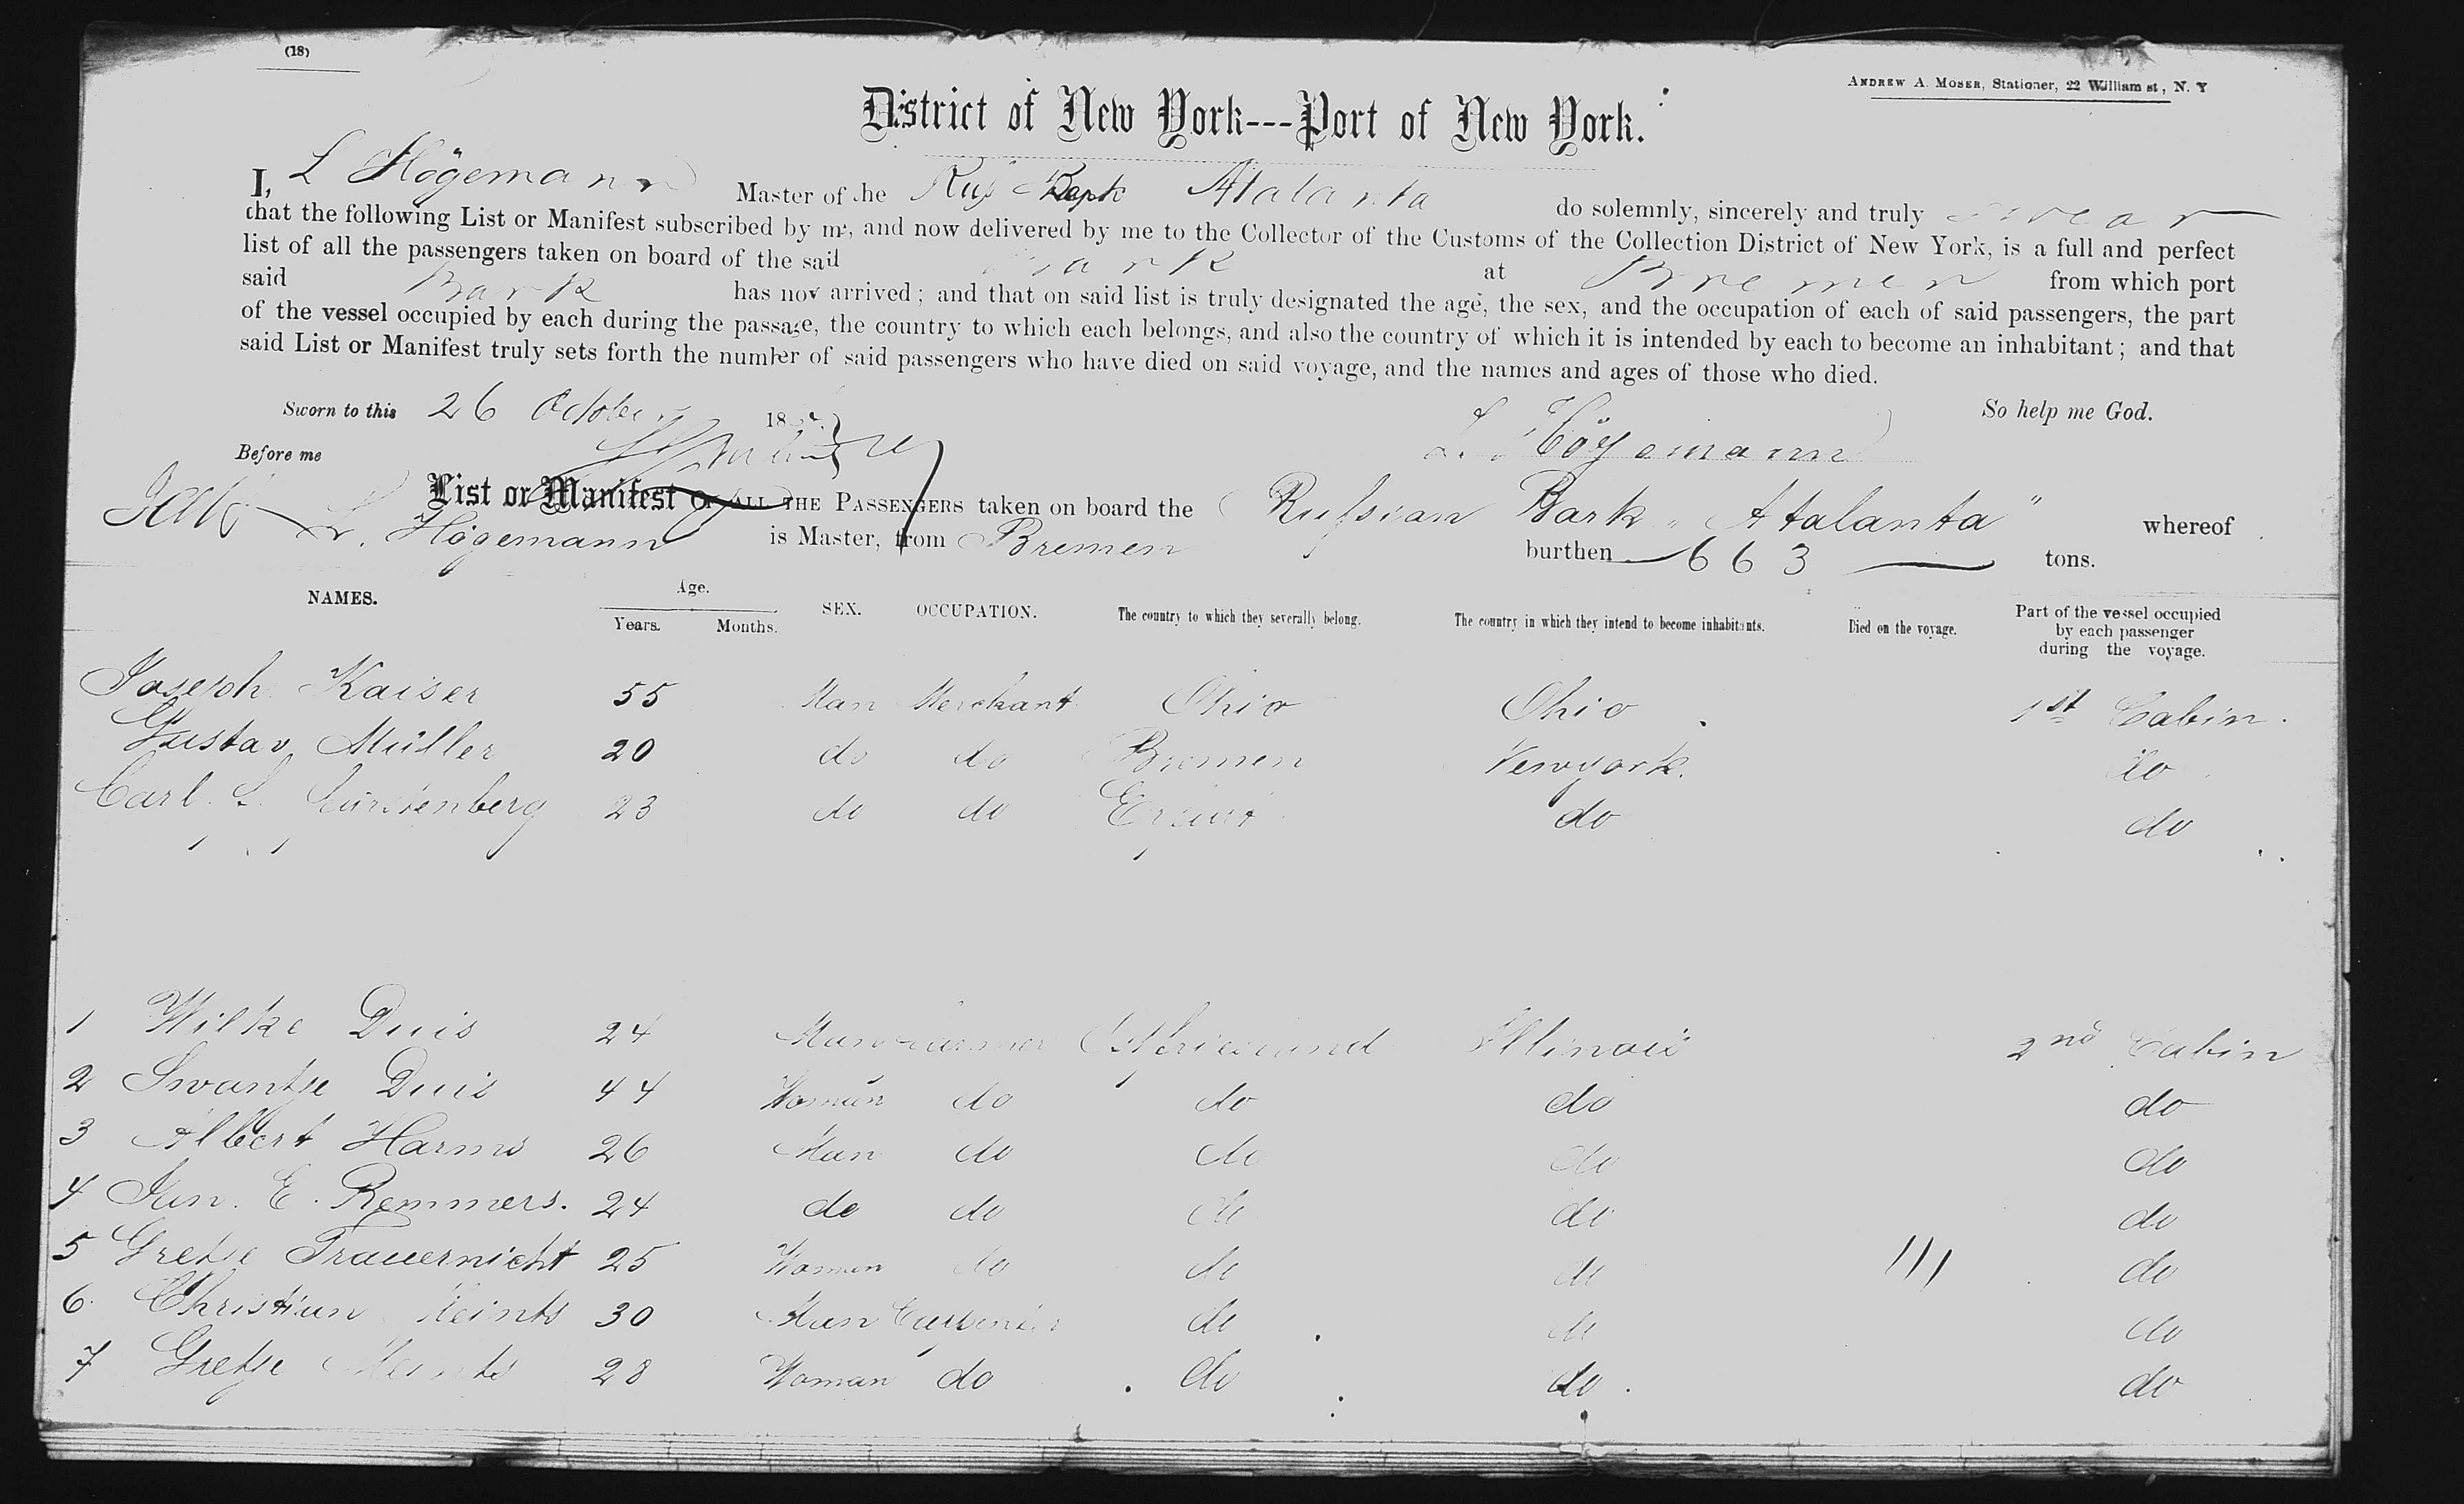 (18)
ANDREW A. MOSER, Stationer, 22 William st, N. Y
District of New York---Port of New York.
I, L Högemann Master of the Rus Bark Atalanta do solemnly, sincerely and truly swear
that the following List or Manifest subscribed by me, and now delivered by me to the Collector of the Customs of the Collection District of New York, is a full and perfect
list of all the passengers taken on board of the said Bark at Bremen from which port
said Bark has now arrived; and that on said list is truly designated the age, the sex, and the occupation of each of said passengers, the part
of the vessel occupied by each during the passage, the country to which each belongs, and also the country of which it is intended by each to become an inhabitant; and that
said List or Manifest truly sets forth the number of said passengers who have died on said voyage, and the names and ages of those who died.
Sworn to this 26 October 18 So help me God.
L. Högemann
Before me
List or Manifest OF ALL THE PASSENGERS taken on board the Russian Bark "Atalanta" whereof
L. Högemann is Master, from Bremen burthen 663 tons.
NAMES. Age. Years. Months. SEX. OCCUPATION. The country to which they severally belong. The country in which they intend to become inhabitants. Died on the voyage. Part of the vessel occupied by each passenger during the voyage.
Joseph Kaiser 55 Man Merchant Ohio Ohio 1st Cabin.
Gustav Müller 20 do do Bremen Newyork. do
Carl 23 do do Erfurt do do
1 Wilke Duis 24 Man Farmer Ostfriesland Illinois 2nd Cabin
2 Swantje Duis 44 Woman do do do do
3 Albert Harms 26 Man do do do do
4 Jan. E. Remmers. 24 do do do do do
5 Gretje Trauernicht 25 Woman do do do do
6. Christian Meints 30 Man Carpenter do do do
7 Gretje Meints 28 Woman do do do do